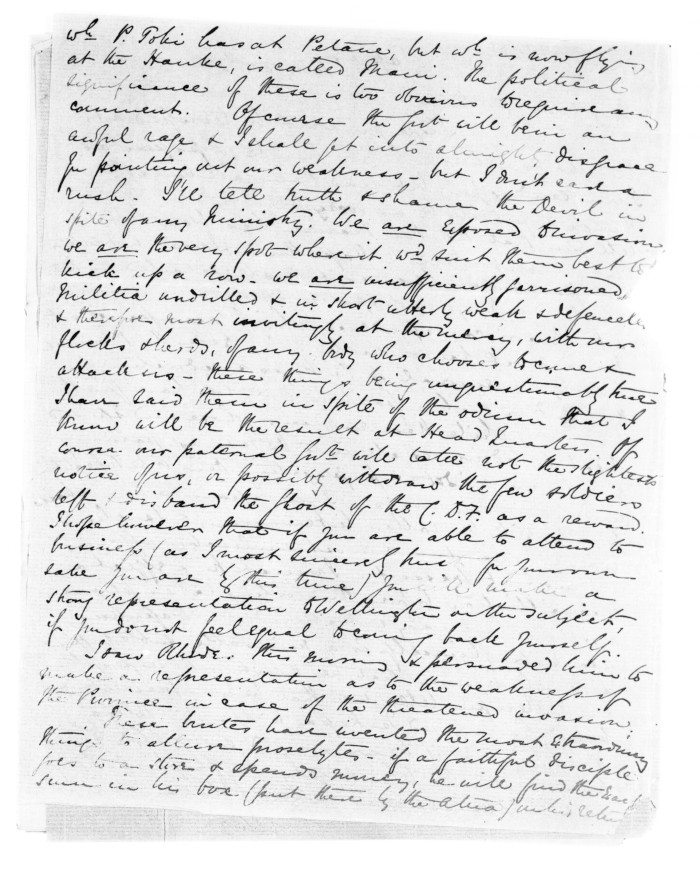 wh P. Toki has at Petane, but wh is now flying
at the Hauke, is called Maui. The political
significance of these is too obvious to require any
comment. Of course the Govt will be in an
awful rage & I shall get into almighty disgrace
for pointing out our weakness - but I don't care a
rush. I'll tell truth & shame the Devil in
spite of any Ministry. We are exposed to invasion
we are the very spot where it wd suit them best to
kick up a row - we are insufficiently garrisoned,
Militia undrilled & in short utterly weak & defenceless
& therefore most invitingly at the mercy, with our
flocks & herds, of any body who chooses to come &
attack us - these things being unquestionably true
I have said them in spite of the odium that I
know will be the result at Head Quarters. Of
course our paternal Govt will take not the slightest
notice of us, or possibly withdraw the few soldiers
left & disband the ghost of the C.D.F. as a reward.
I hope however that if you are able to attend to
business (as I most sincerely trust for your own
sake you are by this time) you will make a
strong representation to Wellington on the subject,
if you do not feel equal to coming back yourself.
I saw Rhodes this morning & persuaded him to
make a representation as to the weakness of
the Province in case of the threatened invasion.
These brutes have invented the most extraordinary
things to allure proselytes - if a faithful disciple
goes to a store & spends money, he will find the exact
sum in his box (put there by the Atua) on his return